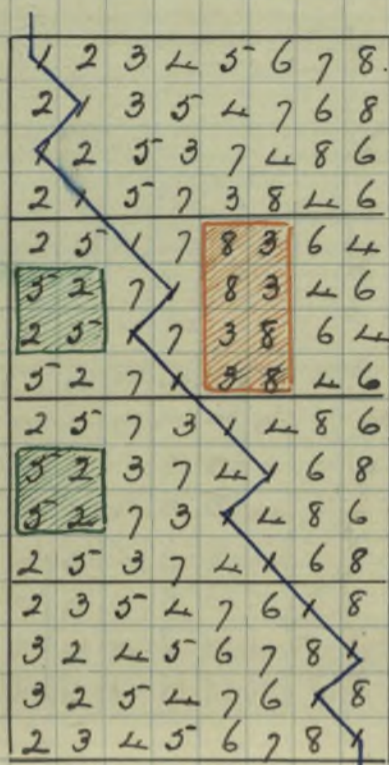 1 2 3 4 5 6 7 8.
2 1 3 5 4 7 6 8
1 2 5 3 7 4 8 6
2 1 5 7 3 8 4 6
2 5 1 7 8 3 6 4
5 2 7 1 8 3 4 6
2 5 1 7 3 8 6 4
5 2 7 1 3 8 4 6
2 5 7 3 1 4 8 6
5 2 3 7 4 1 6 8
5 2 7 3 1 4 8 6
2 5 3 7 4 1 6 8
2 3 5 4 7 6 1 8
3 2 4 5 6 7 8 1
3 2 5 4 7 6 1 8
2 3 4 5 6 7 8 1